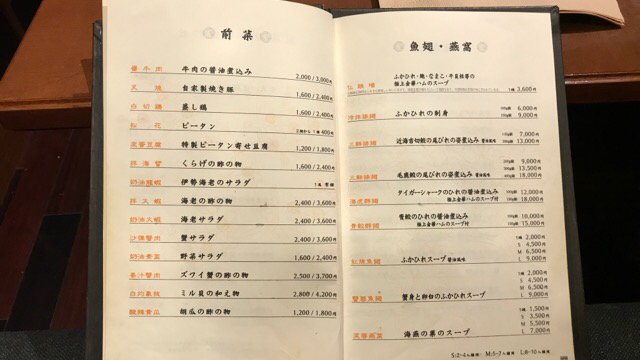 前菜
醤牛肉 牛肉の醤油煮込み 2,000/3,000円
叉焼 自家製焼き豚 1,600/2,400円
白切鶏 蒸し鶏 1,600/2,400円
松花 ピータン 400円
特製ピータン寄せ豆腐 1,200/1,800円
くらげの酢の物 1,600/2,400円
伊勢海老のサラダ
拌大蝦 海老の酢の物 2,400/3,600円
奶油大蝦 海老サラダ 2,400/3,600円
沙律蟹肉 蟹サラダ 2,400/3,600円
奶油青菜 野菜サラダ 1,600/2,400円
姜汁蟹肉 ズワイ蟹の酢の物 2,500/3,700円
ミル貝の和え物 2,800/4,200円
酸辣黄瓜 胡瓜の酢の物 1,200/1,800円
魚翅・燕窩
ふかひれ・鮑・なまこ・干貝柱等の
極上金華ハムのスープ
3,600円
ふかひれの刺身 6,000円
9,000円
近海吉切鮫の尾びれの姿煮込み 醤油風味 7,000円
13,000円
9,000円
13,500円
毛鹿鮫の尾びれの姿煮込み 醤油風味 18,000円
タイガーシャークのひれの醤油煮込み 12,000円
極上金華ハムのスープ付 18,000円
青鮫のひれの醤油煮込み 10,000円
極上金華ハムのスープ付 15,000円
2,000円
S 4,500円
M 6,500円
紅焼魚翅 ふかひれスープ 醤油風味 L 9,000円
2,000円
S 4,500円
M 6,500円
蟹蛋魚翅 蟹身と卵白のふかひれスープ L 9,000円
1,500円
S 3,500円
M 5,500円
芙蓉燕窩 海燕の巣のスープ L 7,000円
S:2~4人様用 M:5~7人様用 L:8~10人様用